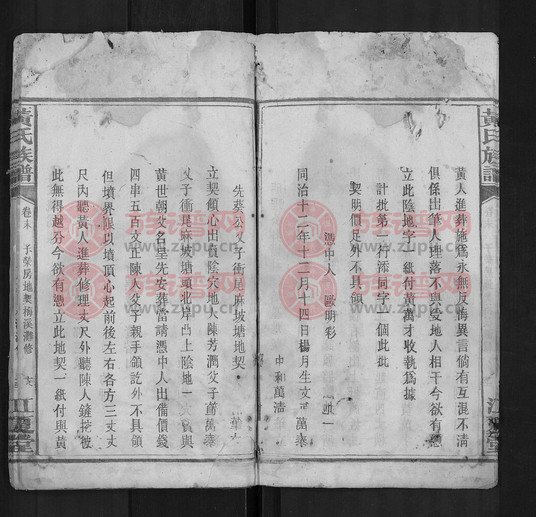 黃氏族譜
黃人進葬施爲永無反悔異言倘有互混不淸
俱係出筆人理落不與受地人相干今欲有憑
立此陰地一紙付黃萬才收執爲據
計批第一行添同字一個此批
契明價足外不具領
憑中人　歐明彩
同治十二年十二月十四日楊月生文
萬泰
中和萬濤
先葵公父子衝尾麻坡塘地契
立契傾心出賣陰穴地人陳芳潤父子蕾萬泰
父子衝尾麻坡塘頭北岸凸上陰地一
與
黃世朝父名皇先安葬當請憑中人出備價錢
四串五百文正陳人父子親手領訖外不具領
但墳界限以墳頂心起前後左右各方三丈丈
尺內聽黃人進葬修理丈尺外聽陳人鏟挖彼
此無得越分今欲有憑立此地契一紙付與黃
黃氏族譜
卷末
江夏堂